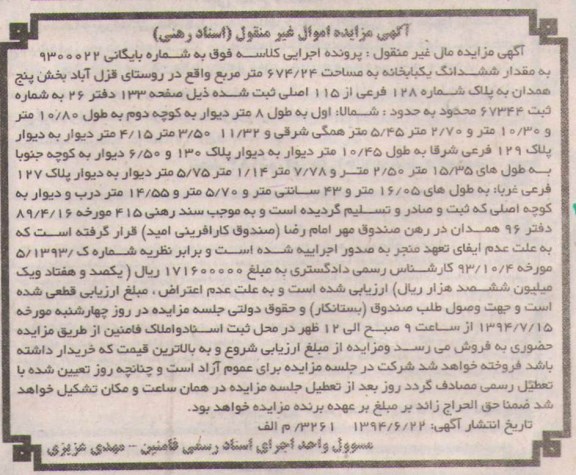 آگهی مزایده اموال غیر منقول (اسناد رهنی)
آگهی مزایده مال غیر منقول : پرونده اجرایی کلاسه فوق به شماره بایگانی ۹۳۰۰۰۲۲
به مقدار ششدانگ یکبابخانه به مساحت ۶۷۴/۲۴ متر مربع واقع در روستای قزل آباد بخش پنج
همدان به پلاک شماره ۱۲۸ فرعی از ۱۱۵ اصلی ثبت شده ذیل صفحه ۱۳۳ دفتر ۲۶ به شماره
ثبت ۶۷۳۴۴ محدود به حدود : شمالا: اول به طول ۸ متر دیوار به کوچه دوم به طول ۱۰/۸۰ متر
و ۱۰/۳۰ متر و ۲/۷۰ متر ۵/۴۵ متر همگی شرقی و ۱۱/۳۲ ۳/۵۰ متر ۴/۱۵ متر دیوار به دیوار
پلاک ۱۲۹ فرعی شرقا به طول ۱۰/۴۵ متر دیوار به دیوار پلاک ۱۳۰ و ۶/۵۰ دیوار به کوچه جنوبا
به طول های ۱۵/۳۵ متر ۲/۵۰ متر و ۷/۷۸ متر ۱/۱۴ متر ۵/۷۵ متر دیوار به دیوار پلاک ۱۲۷
فرعی غربا: به طول های ۱۶/۰۵ متر و ۴۳ سانتی متر و ۵/۷۰ متر و ۱۴/۵۵ متر درب و دیوار به
کوچه اصلی که ثبت و صادر و تسلیم گردیده است و به موجب سند رهنی ۴۱۵ مورخه ۸۹/۴/۱۶
دفتر ۹۶ همدان در رهن صندوق مهر امام رضا (صندوق کارافرینی امید) قرار گرفته است که
به علت عدم ایفای تعهد منجر به صدور اجراییه شده است و برابر نظریه شماره ک/۵/۱۳۹۳
مورخه ۹۳/۱۰/۴ کارشناس رسمی دادگستری به مبلغ ۱۷۱۶۰۰۰۰۰ ریال ( یکصد و هفتاد ویک
میلیون ششصد هزار ریال) ارزیابی شده است و به علت عدم اعتراض ، مبلغ ارزیابی قطعی شده
است و جهت وصول طلب صندوق (بستانکار) و حقوق دولتی جلسه مزایده در روز چهارشنبه مورخه
۱۳۹۴/۷/۱۵ از ساعت ۹ صبح الی ۱۲ ظهر در محل ثبت اسنادواملاک فامنین از طریق مزایده
حضوری به فروش می رسد ومزایده از مبلغ ارزیابی شروع و به بالاترین قیمت که خریدار داشته
باشد فروخته خواهد شد شرکت در جلسه مزایده برای عموم آزاد است و چنانچه روز تعیین شده با
تعطیل رسمی مصادف گردد روز بعد از تعطیل جلسه مزایده در همان ساعت و مکان تشکیل خواهد
شد ضمنا حق الحراج زائد بر مبلغ بر عهده برنده مزایده خواهد بود.
تاریخ انتشار آگهی: ۱۳۹۴/۶/۲۲ ۳۲۶۱/ م الف
مسوول واحد اجرای اسناد رسمی فامنین – مهدی عزیزی